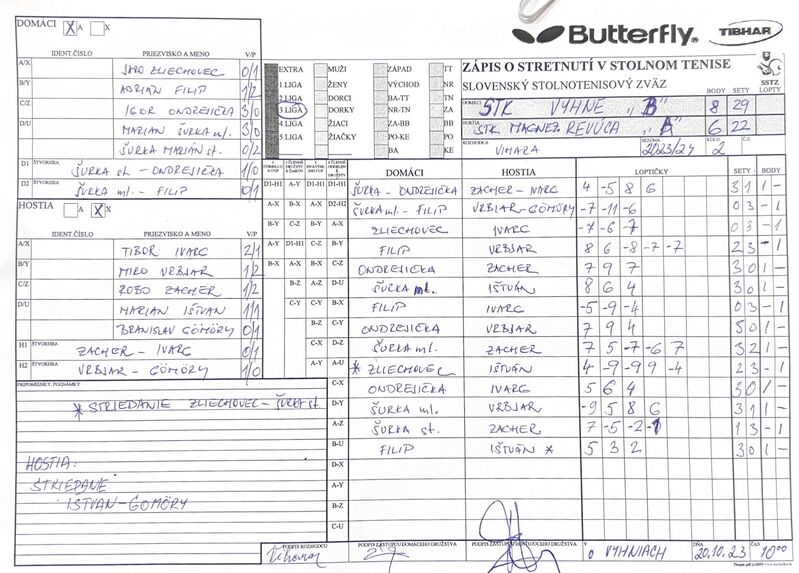 DOMÁCI X A X
Butterfly. TIBHAR
IDENT.ČÍSLO PRIEZVISKO A MENO V/P
A/X JARO ZLIECHOVEC 0/1
B/Y ADRIÁN FILIP 1/2
C/Z IGOR ONDREJIČKA 3/0
D/U MARIAN ŠURKA ml. 3/0
ŠURKA MARIÁN st. 0/2
D1 ŠTVORHRA ŠURKA st. - ONDREJIČKA 1/0
D2 ŠURKA ml. - FILIP 0/1
EXTRA MUŽI ZÁPAD TT
1 LIGA ŽENY VÝCHOD NR
2 LIGA DORCI BA-TT TN
3 LIGA DORKY NR-TN ZA
4 LIGA ŽIACI ZA-BB BB
5 LIGA ŽIAČKY PO-KE PO
BA KE
ZÁPIS O STRETNUTÍ V STOLNOM TENISE
SLOVENSKÝ STOLNOTENISOVÝ ZVÄZ
SSTZ
BODY SETY LOPTY
DOMÁCI STK VYHNE "B" 8 29
HOSTIA STK MAGNEZ. REVÚCA "A" 6 22
ROZHODCA SEZÓNA 2023/24 KOLO 2 Č.Z.
HOSTIA A X X
IDENT.ČÍSLO PRIEZVISKO A MENO V/P
A/X TIBOR IVARC 2/1
B/Y MIRO VRBJAR 1/2
C/Z ROBO ZACHER 1/2
D/U MARIAN IŠTVAN 1/1
BRANISLAV GÖMÖRY 0/1
H1 ŠTVORHRA ZACHER - IVARC 0/1
H2 ŠTVORHRA VRBJAR - GÖMÖRY 1/0
PRIPOMIENKY, POZNÁMKY
* STRIEDANIE ZLIECHOVEC - ŠURKA st.
HOSTIA:
STRIEDANIE
ISTVAN - GÖMÖRY
DOMÁCI HOSTIA LOPTIČKY SETY BODY
D1-H1 A-Y D1-H1 D1-H1 ŠURKA - ONDREJIČKA ZACHER - IVARC 4 -5 8 6 3 1 1 -
A-X B-X A-X D2-H2 ŠURKA ml. - FILIP VRBJAR - GÖMÖRY -7 -11 -6 0 3 - 1
B-Y C-Z B-Y A-X ZLIECHOVEC IVARC -7 -6 -7 0 3 - 1
A-Y D1-H1 C-Z B-Y FILIP VRBJAR 8 6 -8 -7 -7 2 3 - 1
B-X A-X B-X C-Z ONDREJIČKA ZACHER 7 9 7 3 0 1 -
B-Z A-Z D-U ŠURKA ml. IŠTVÁN 8 6 4 3 0 1 -
C-Y C-Y B-X FILIP IVARC -5 -9 -4 0 3 - 1
B-Z C-Y ONDREJIČKA VRBJAR 7 9 4 3 0 1 -
C-X D-Z ŠURKA ml. ZACHER 7 5 -7 -6 7 3 2 1 -
A-Y A-U * ZLIECHOVEC IŠTVÁN 4 -9 -9 9 -4 2 3 - 1
C-X ONDREJIČKA IVARC 5 6 4 3 0 1 -
D-Y ŠURKA ml. VRBJAR -9 5 8 6 3 1 1 -
A-Z ŠURKA st. ZACHER 7 -5 -2 1 3 - 1
B-U FILIP IŠTVÁN * 5 3 2 3 0 1 -
D-X
A-Y
B-Z
C-U
PODPIS ROZHODCU PODPIS ZÁSTUPCU DOMÁCEHO DRUŽSTVA PODPIS ZÁSTUPCU HOSŤUJÚCEHO DRUŽSTVA V VYHNIACH DŇA 20.10.23 ČAS 10:00